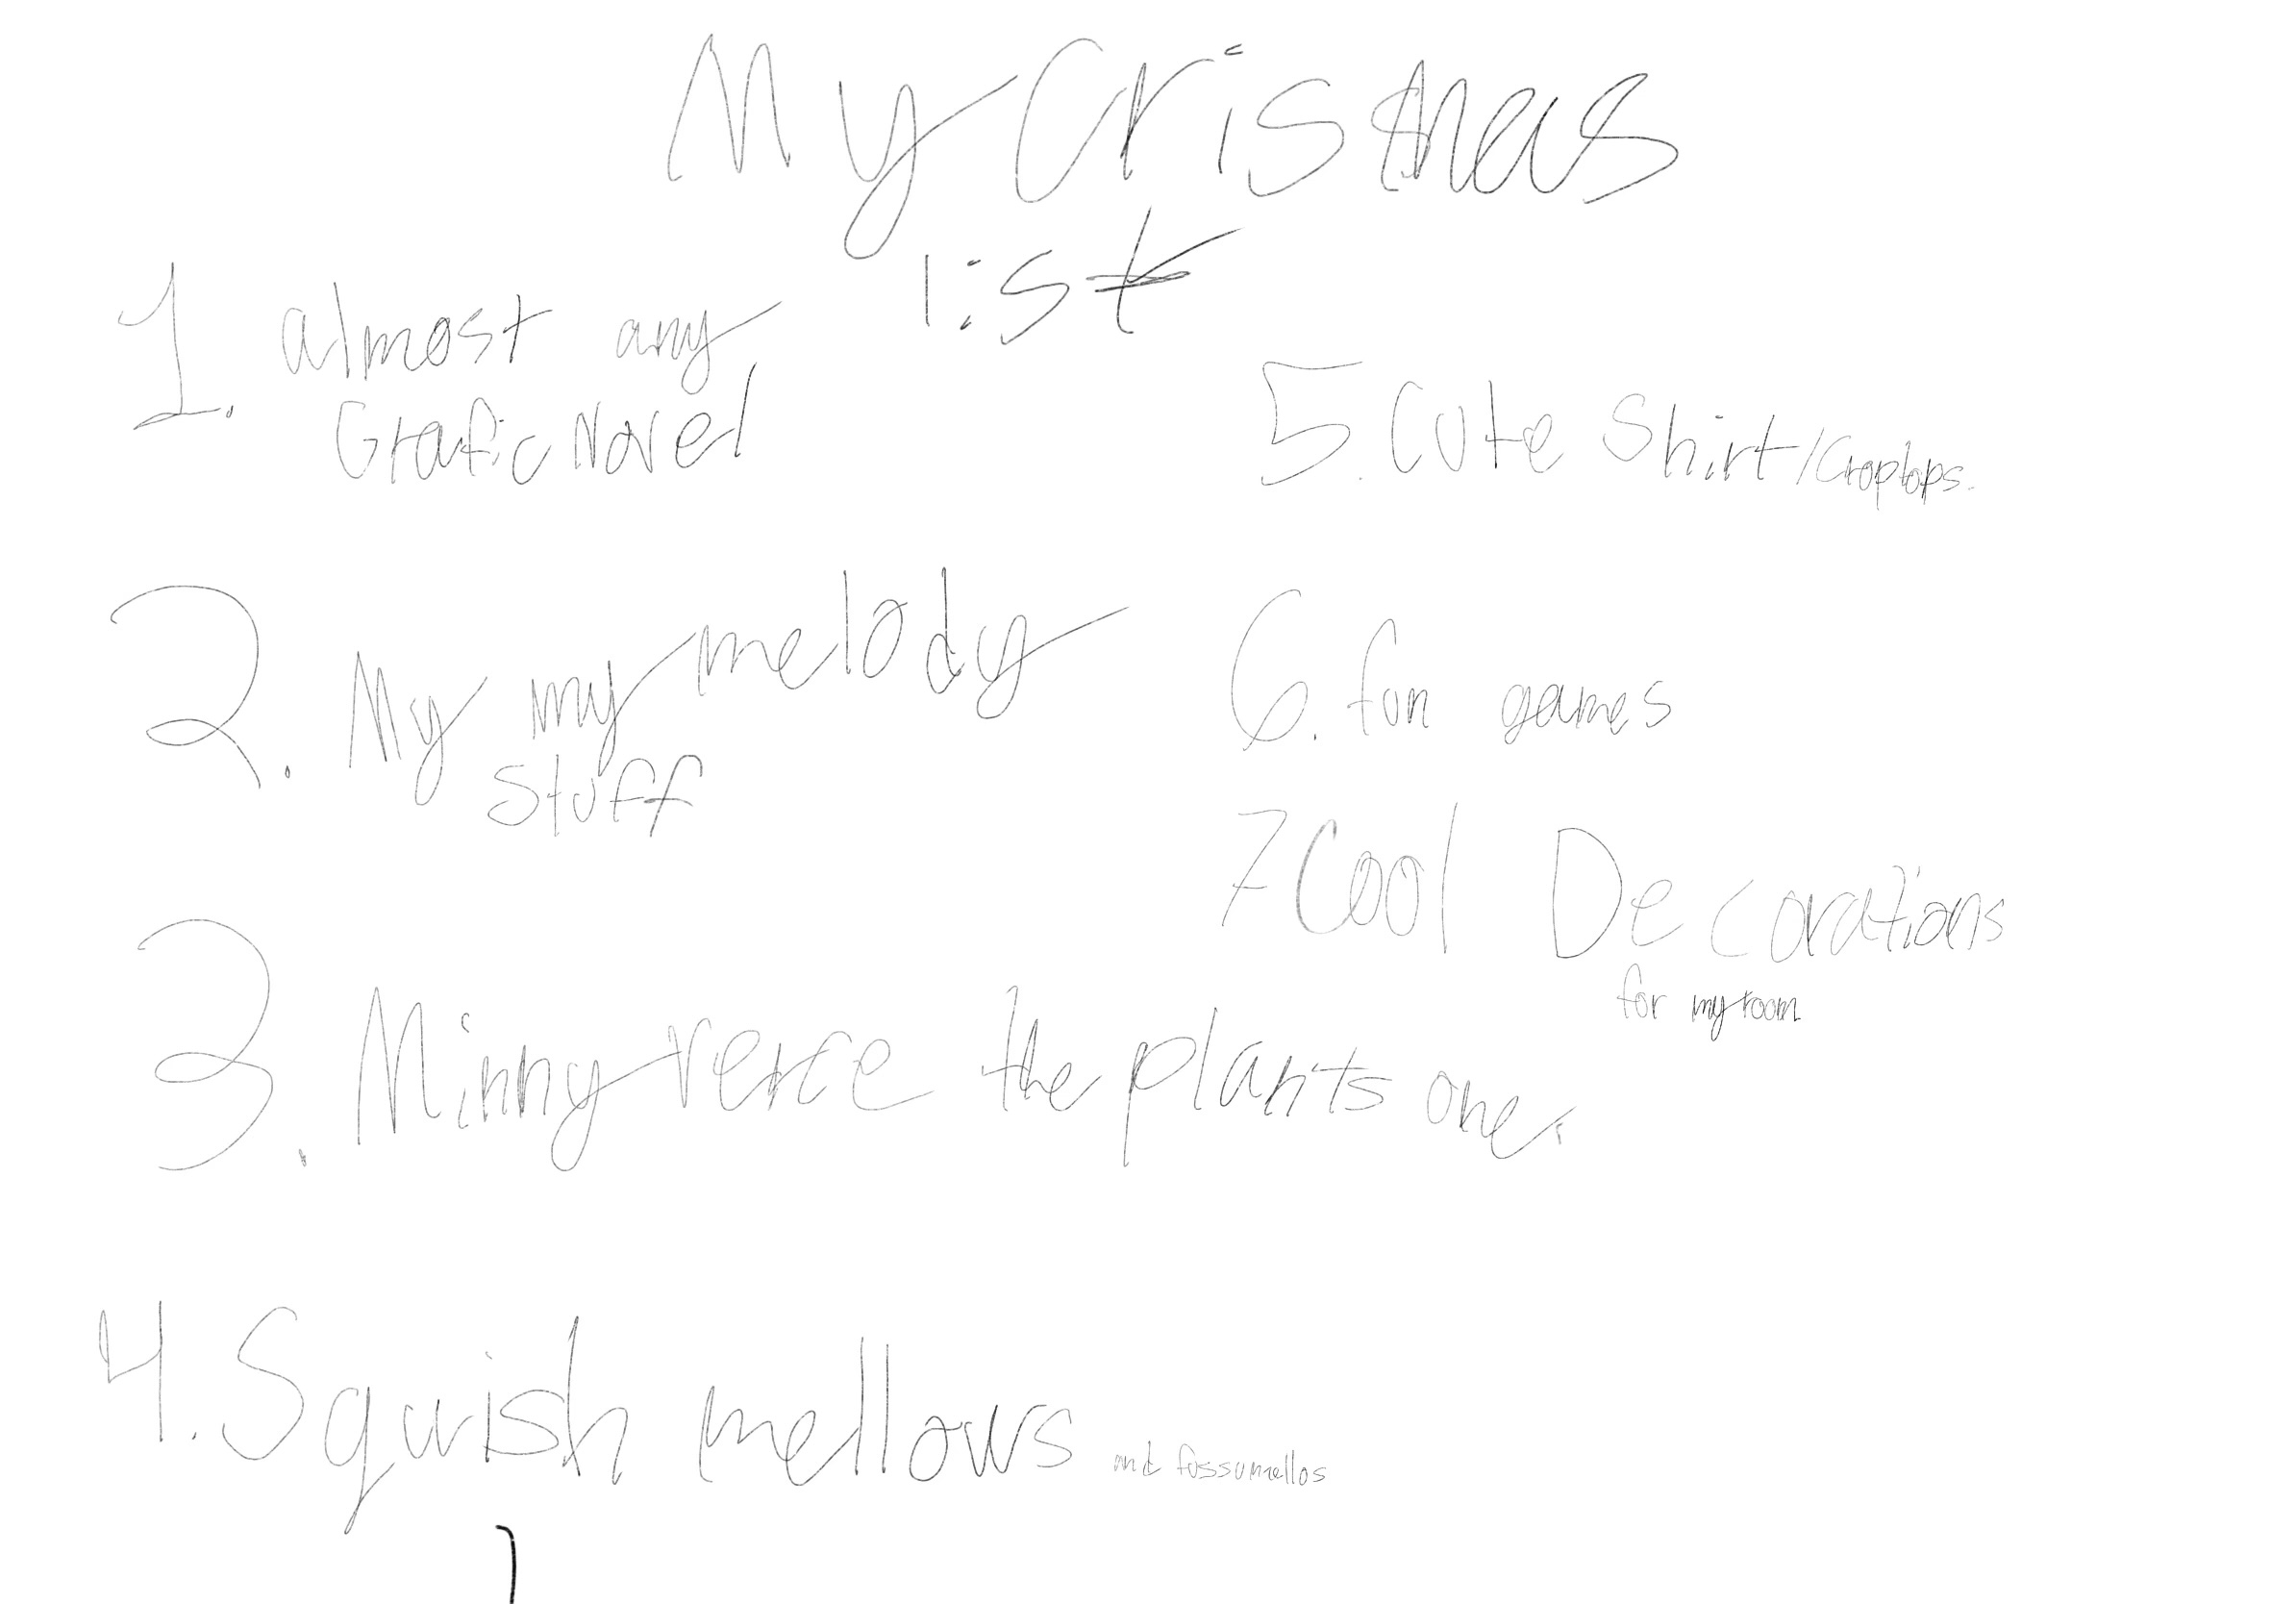 My Cristmas
list
1. almost any
Grafic Novel
2. My my melody
stuff
3. Minny verce the plants one.
4. Squish mellows and fossumellos
5. Cute Shirt/Croptops.
6. fun games
7 Cool Decorations
for my room